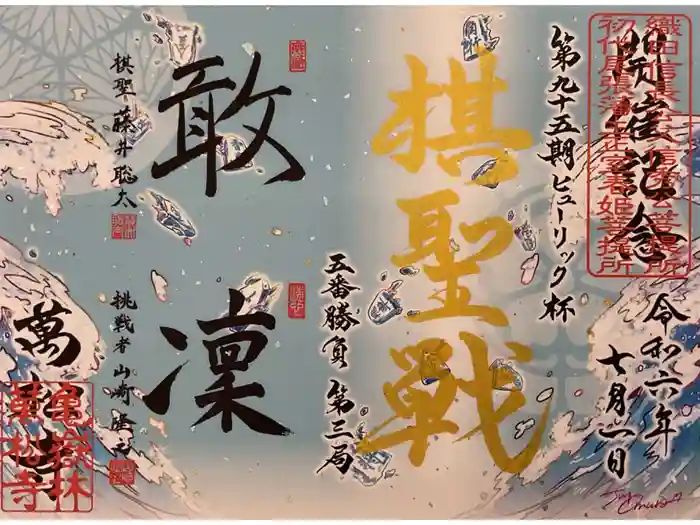 開催記念
織田信長公信秀公菩提所
初代尾張藩主正室春姫菩提所
令和六年
七月一日
第九十五期ヒューリック杯
棋聖戦
五番勝負 第三局
敢
凜
棋聖 藤井聡太
挑戦者 山崎隆之
萬
亀嶽林
萬松寺